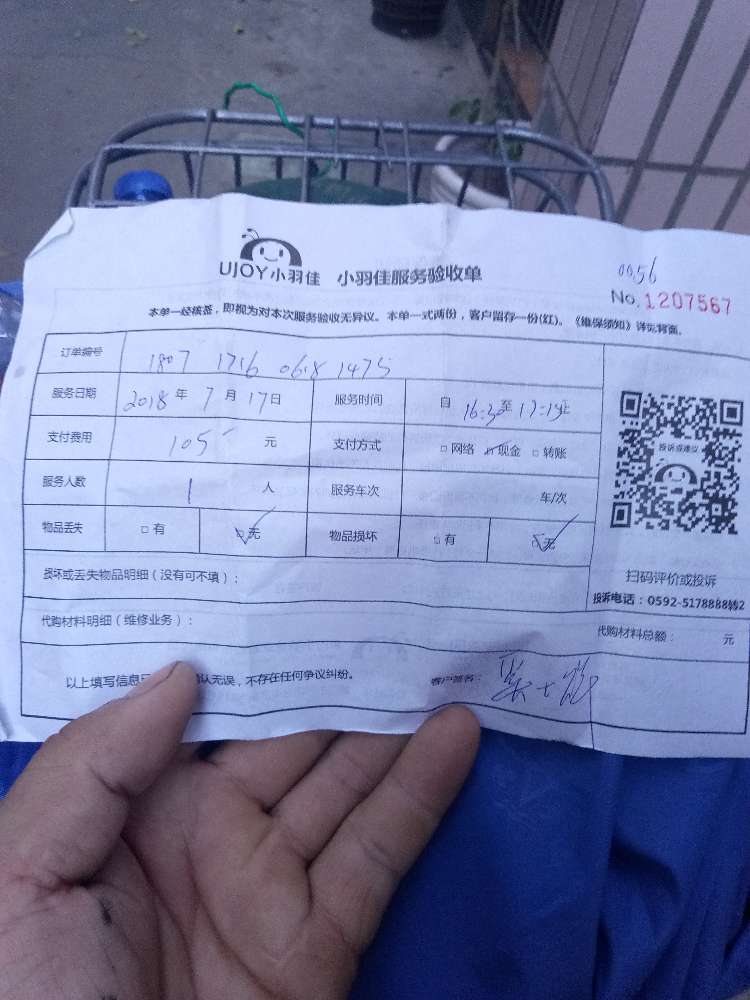 UJOY小羽佳 小羽佳服务验收单
0056
No. 1207567
本单一经核签，即视为对本次服务验收无异议。本单一式两份，客户留存一份(红)。《维保须知》详见背面。
订单编号 1807 1716 0618 1475
服务日期 2018年 7月 17日 服务时间 自 16:3 至 17:15止
支付费用 105 元 支付方式 □网络 ☑现金 □转账
服务人数 1 人 服务车次 车/次
物品丢失 □有 ☑无 物品损坏 □有 ☑无
投诉或建议
扫码评价或投诉
投诉电话：0592-5178888转2
损坏或丢失物品明细（没有可不填）：
代购材料明细（维修业务）： 代购材料总额： 元
以上填写信息 认无误，不存在任何争议纠纷。 客户签名：